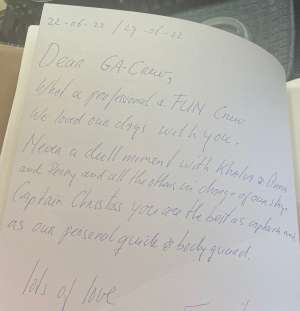 22-06-22 / 29-06-22
Dear GA-Crew,
What a professional & FUN Crew
We loved our days with you.
Never a dull moment with &
and and all the others in charge of our stay.
Captain Christos you are the best as captain and
as our personal guide & bodyguard.
lots of love